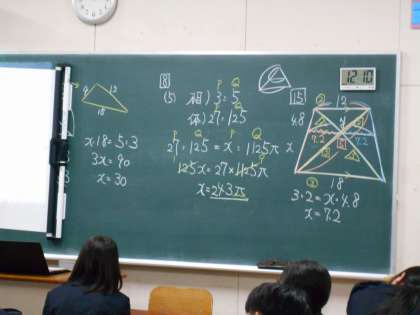 9 12
18
x:18=5:3
3x=90
x=30
8
(5) 相) 3:5
P Q
体) 27:125
P Q P Q
27:125=x:1125π
125x=27×1125π
x=243π
15
12
4.8
7.2
7.2
x
18
3:2=x:4.8
x=7.2
12 10